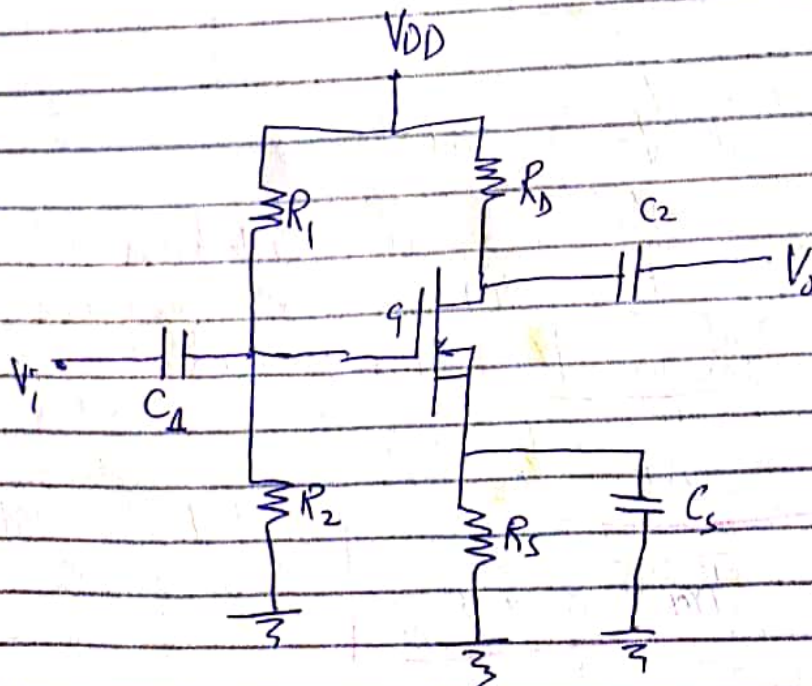 VDD
R1
RD
C2
G
Vi
C1
R2
RS
CS